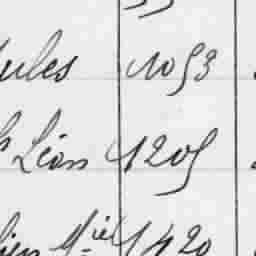 ules 1053
h Léon 1205
lien Miel 1420